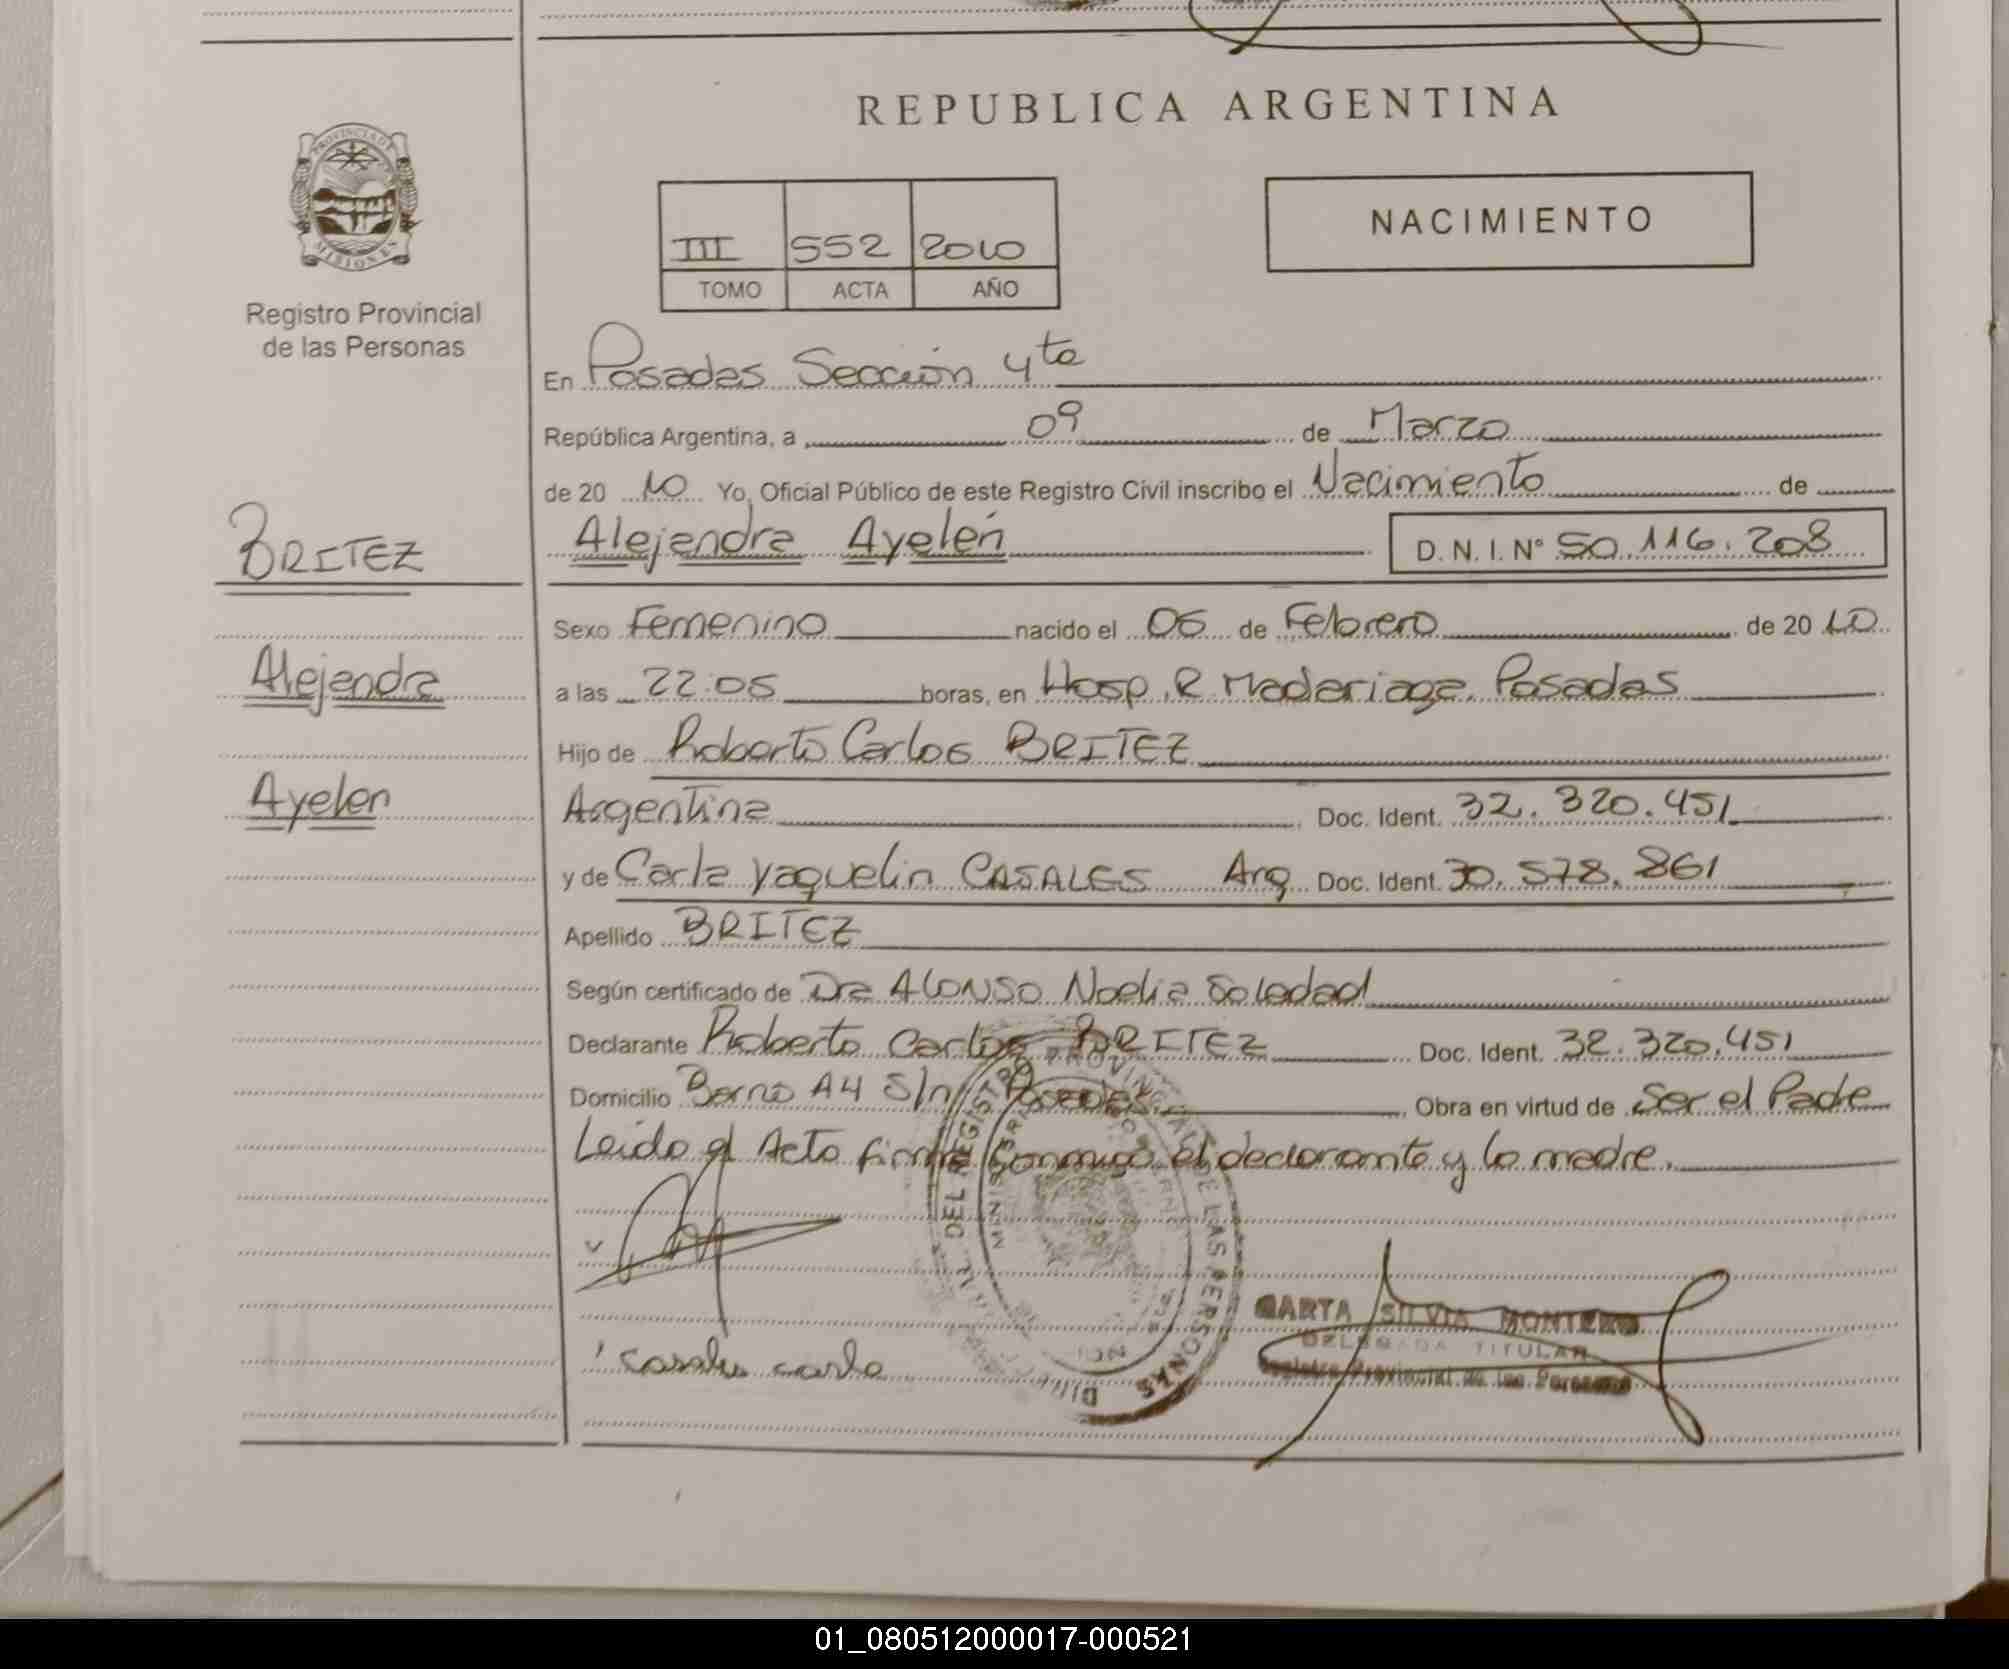 REPUBLICA ARGENTINA
PROVINCIA DE MISIONES
Registro Provincial
de las Personas
NACIMIENTO
III 552 2010
TOMO ACTA AÑO
En Posadas Sección 4ta
República Argentina, a 09 de Marzo
de 2010 Yo, Oficial Público de este Registro Civil inscribo el Nacimiento de
BRITEZ
Alejandra Ayelén D. N. I. N° 50.116.208
Sexo Femenino nacido el 06 de Febrero de 2010
Alejandra
a las 22:05 boras, en Hosp. R Madariaga. Posadas
Hijo de Roberto Carlos BRITEZ
Ayelen
Argentina Doc. Ident. 32.320.451
y de Carla Yaquelin CASALES Arg Doc. Ident. 30.578.861
Apellido BRITEZ
Según certificado de Dra ALONSO Noelia Soledad
Declarante Roberto Carlos BRITEZ Doc. Ident. 32.320.451
Domicilio Barrio A4 S/n Posadas Obra en virtud de Ser el Padre
Leido el Acto firma conmigo el declarante y la madre.
DEL REGISTRO PROVINCIAL DE LAS PERSONAS
casales carla
MARTA SILVIA MONTERO
DELEGADA TITULAR
Registro Provincial de las Personas
01_080512000017-000521